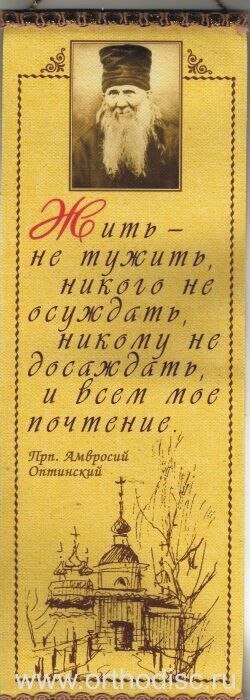 Жить –
не тужить,
никого не
осуждать,
никому не
досаждать,
и всем мое
почтение.
Прп. Амвросий
Оптинский
www.orthodisc.ru